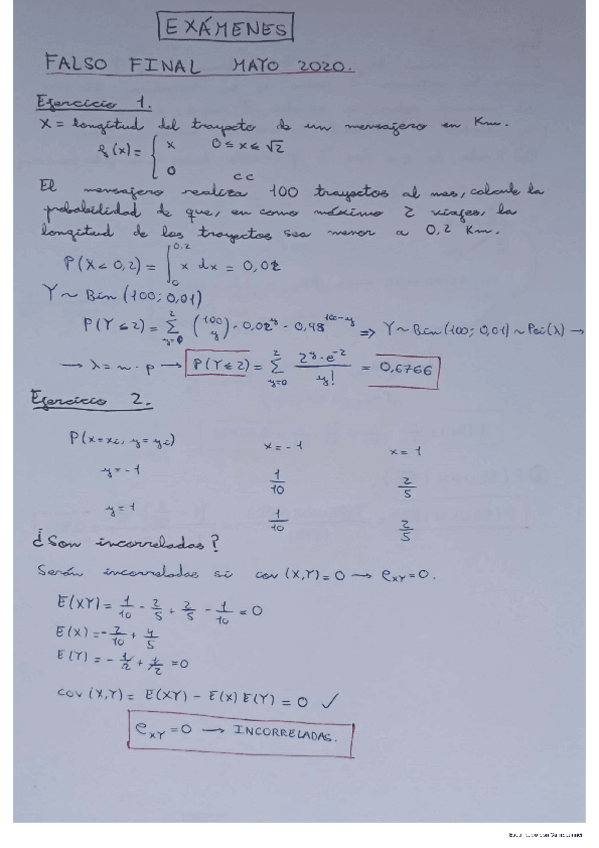 EXÁMENES
FALSO FINAL MAYO 2020.
Ejercicio 1.
X = longitud del trayecto de un mensajero en Km.
f(x) = { x 0 ≤ x ≤ √2
0 cc
El mensajero realiza 100 trayectos al mes, calcule la
probabilidad de que, en como máximo 2 viajes, la
longitud de los trayectos sea menor a 0,2 Km.
P(X < 0,2) = ∫₀^0,2 x dx = 0,02
Y ~ Bin (100; 0,01)
P(Y ≤ 2) = Σ_{y=0}^{2} (100 y) · 0,02^y · 0,98^{100-y} => Y ~ Bin (100; 0,01) ~ Poi(λ) →
→ λ = n · p → P(Y ≤ 2) = Σ_{y=0}^{2} 2^y · e^{-2} / y! = 0,6766
Ejercicio 2.
P(X=xi, y=yi) x = -1 x = 1
y = -1 1/10 2/5
y = 1 1/10 2/5
¿Son incorreladas?
Serán incorreladas si cov (X,Y) = 0 → ρxy = 0.
E(XY) = 1/10 - 2/5 + 2/5 - 1/10 = 0
E(X) = - 2/10 + 4/5
E(Y) = - 1/2 + 1/2 = 0
cov (X,Y) = E(XY) - E(X) E(Y) = 0 ✓
ρxy = 0 → INCORRELADAS.